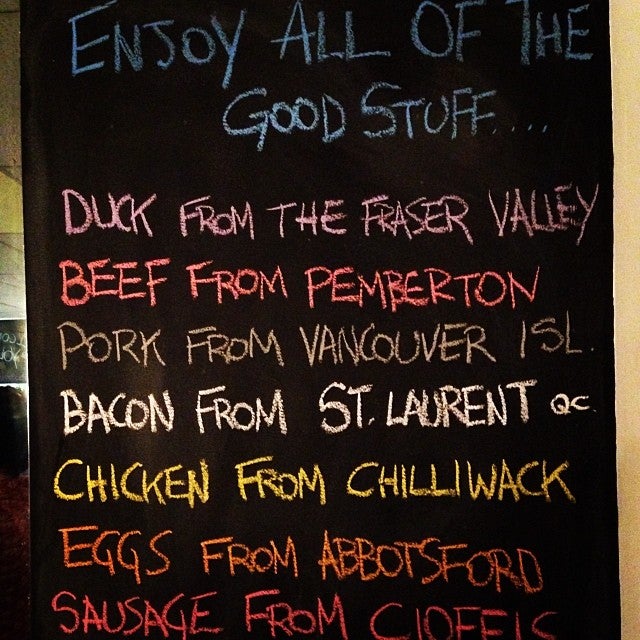 ENJOY ALL OF THE
GOOD STUFF....
DUCK FROM THE FRASER VALLEY
BEEF FROM PEMBERTON
PORK FROM VANCOUVER ISL.
BACON FROM ST. LAURENT QC.
CHICKEN FROM CHILLIWACK
EGGS FROM ABBOTSFORD
SAUSAGE FROM CIOFFIS